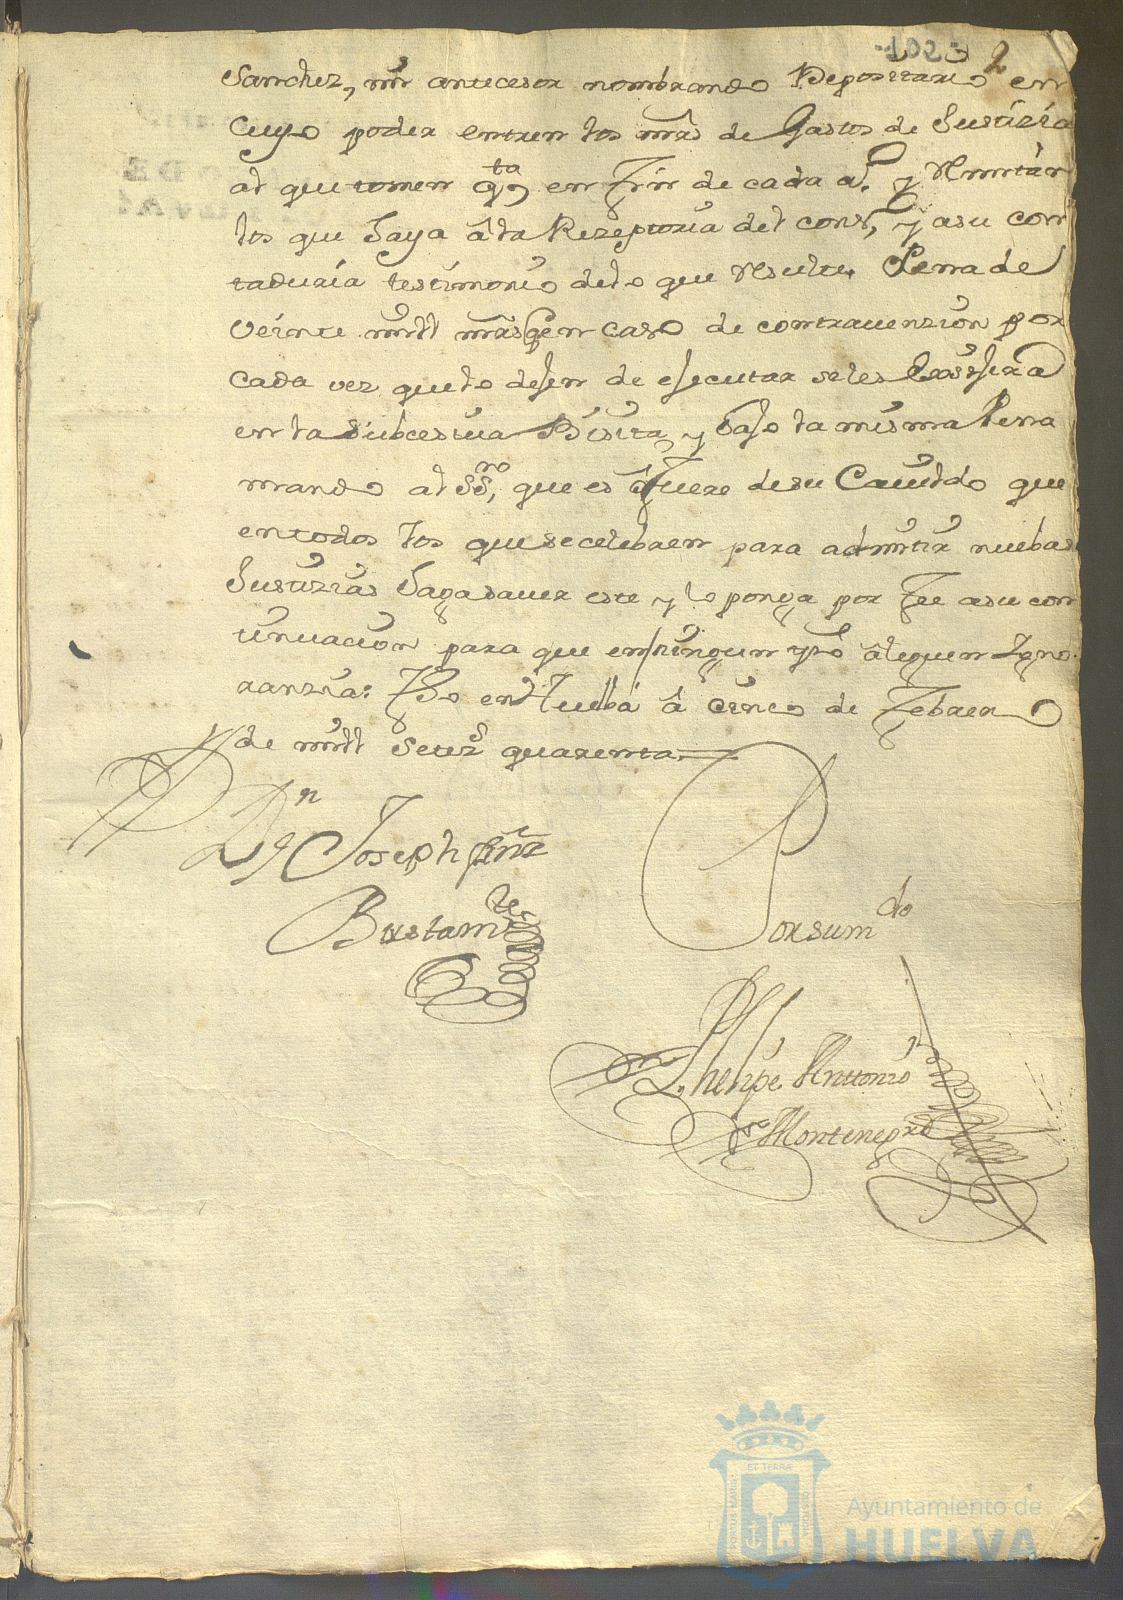 1023 2
Sanchez, mi antecesor nombrando Depositario en
cuyo poder entren los mrs de Gastos de Justizia
al que tomen qta en fin de cada a. y Rmitan
los que haya â la Rezeptoria del cons, y a su con
taduria testimonio de lo que Rsulte, Pena de
veinte mill mrs qen caso de contravenzion por
cada vez que lo dejen de ejecutar se les exsijira
en la subcesiva Visita, y bajo la misma Pena
mando al SSno, que es ô fuere de su Cavildo que
en todos los que se celebren para admitir nuebas
Justizias haga saver este y lo ponga por fee a su con
tinuacion para que en ningun tpo âleguen Igno
ranzia: fho en Huelba â cinco de febrero
de mill setez quarenta =
Dn Joseph
Bustamte
Por su mdo
Phelipe Anttonio
Montenegro
ET TERRAE
PORTUS MARIS
CUSTODIA
Ayuntamiento de
HUELVA